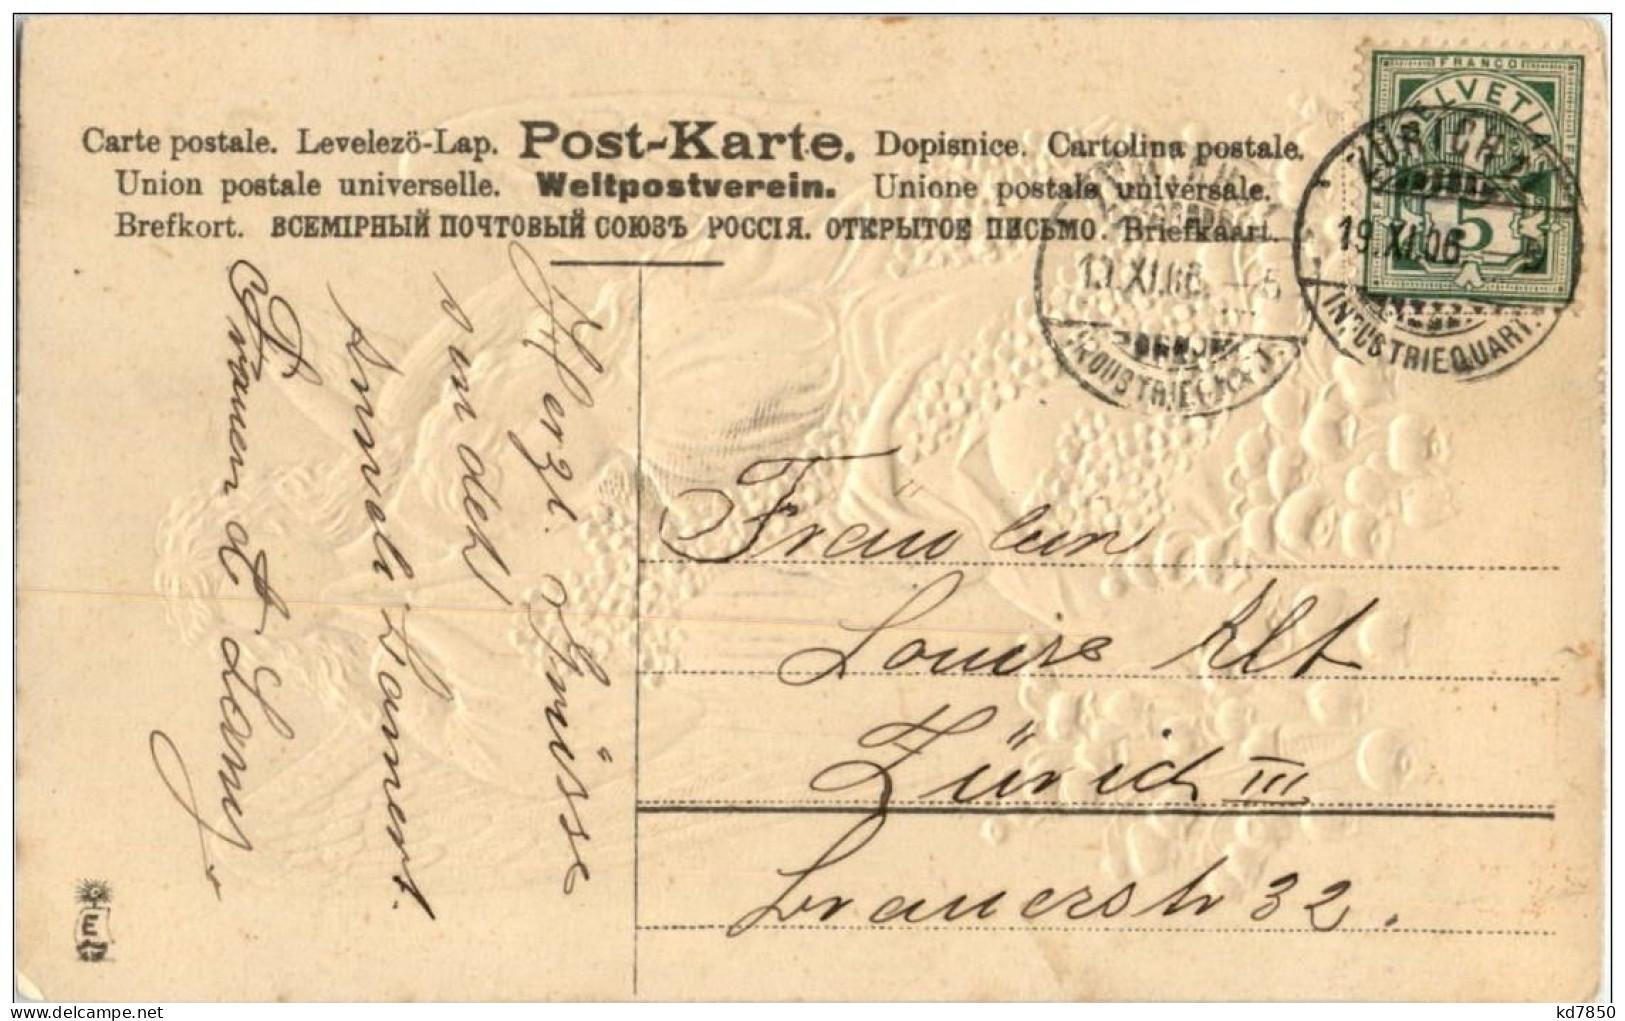 Carte postale. Levelezö-Lap. Post-Karte. Dopisnice. Cartolina postale.
Union postale universelle. Weltpostverein. Unione postale universale.
Brefkort. ВСЕМІРНЫЙ ПОЧТОВЫЙ СОЮЗЪ РОССІЯ. ОТКРЫТОЕ ПИСЬМО. Briefkaart.
FRANCO
HELVETIA
5
ZÜRICH
19.XI.06. 5
INDUSTRIEQUART.
XI.06. 5
Herzl. Grüsse
sendet
Frauen
Fraulein
Louise Alt
Zürich III
Brauerstr 32.
E
kd7850